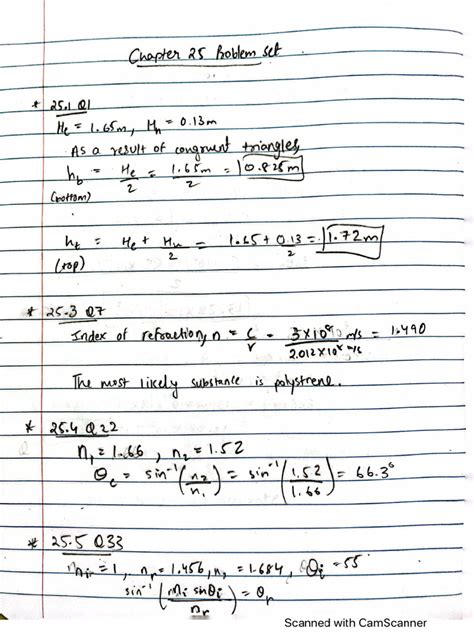 Chapter 25 Problem set
* 25.1 Q1
He = 1.65m, Hh = 0.13m
As a result of congruent triangles,
hb = He/2 = 1.65m/2 = 0.825m
(bottom)
ht = He + Hh/2 = 1.65 + 0.13/2 = 1.72m
(top)
* 25.3 Q7
Index of refraction, n = c/v = 3×10⁸ m/s / 2.012×10⁸ m/s = 1.490
The most likely substance is polystrene.
* 25.4 Q22
n₁ = 1.66, n₂ = 1.52
θc = sin⁻¹(n₂/n₁) = sin⁻¹(1.52/1.66) = 66.3°
* 25.5 Q33
= 1, nr = 1.456, = 1.684, θi = 55
sin⁻¹(ni sinθi/nr) = θr
Scanned with CamScanner